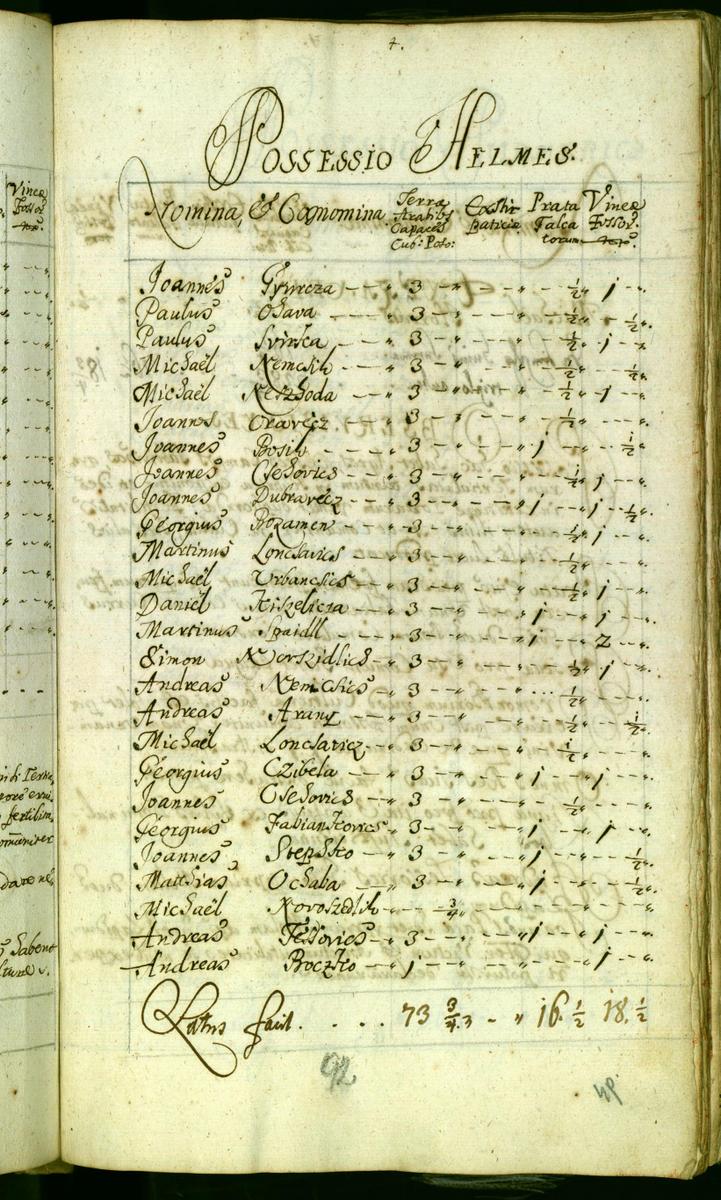 7.
Possessio Helmes.
Nomina, & Cognomina Terræ Arabiles Capaces Cub: Poso: Exstirpaticiæ Prata Falcatorum Vineæ Fossor:
Joannes Gÿurcza — 3 — " — " — ½ — 1 — "
Paulus Osava — 3 — " — " — ½ " — ½ ".
Paulus Svinka — 3 — " — " — ½ — 1 — "
Michaël Nemcsik — 3 — " — " — ½ " — ½ ".
Michaël Neszhoda — 3 — " — " — ½ — 1 — "
Joannes Oravecz — 3 — " — " — ½ " — — "
Joannes Bosik — 3 — " — " 1 — " — ½ "
Joannes Csehovics — 3 — " — " — ½ 1 — "
Joannes Dubravecz — 3 — " — " 1 — 1 — ½ ".
Georgius — 3 — " — " — ½ 1 — "
Martinus Loncsavics — 3 — " — " — ½ " — — "
Michaël Urbancsics — 3 — " — " — ½ 1 — "
Daniel Kiszelicza — 3 — " — " 1 — 1 — "
Martinus Spaidll — 3 — " — " 1 — 2 — "
Simon — 3 — " — " — ½ 1 — "
Andreas Nemcsics — 3 — " — " ... ½ — — "
Andreas Arany — 3 — " — " — ½ " — ½ "
Michaël Loncsavicz — 3 — " — " — ½ " — — "
Georgius Czibela — 3 — " — " 1 — 1 — "
Joannes Csehovics — 3 — " — " — ½ — — "
Georgius Fabiankovics — 3 — " — " 1 — 1 — "
Joannes Stephko — 3 — " — " 1 — " — ½ "
Matthias Ochaba — 3 — " — " 1 — " — ½ ".
Michaël Novoszedlik — " — ¾ " — " — — " — — "
Andreas — 3 — " — " 1 — 1 — "
Andreas Boczko — 1 — " — " — — 1 — "
Latus facit. . . . . 73 ¾ — " 16. ½ 18. ½
92